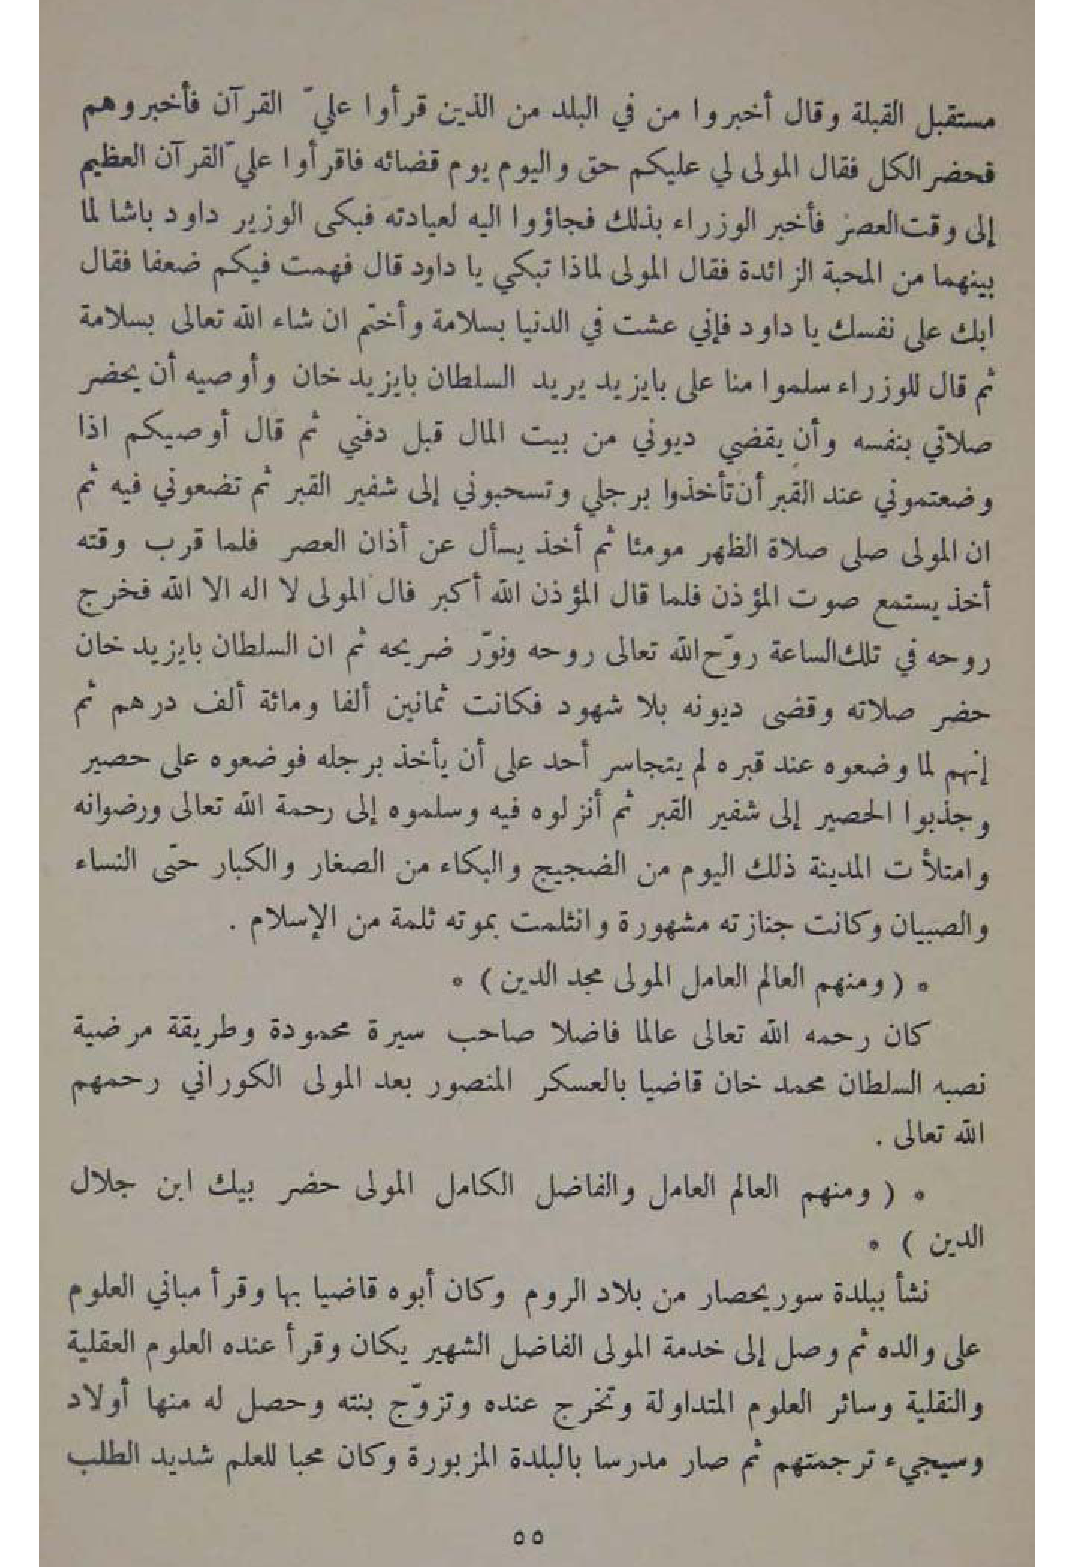 مستقبل القبلة وقال أخبروا من في البلد من الذين قرأوا عليّ القرآن فأخبروهم
فحضر الكل فقال المولى لي عليكم حق واليوم يوم قضائه فاقرأوا عليّ القرآن العظيم
إلى وقت العصر فأخبر الوزراء بذلك فجاؤوا اليه لعيادته فبكى الوزير داود باشا لما
بينهما من المحبة الزائدة فقال المولى لماذا تبكي يا داود قال فهمت فيكم ضعفا فقال
ابك على نفسك يا داود فإني عشت في الدنيا بسلامة وأختم ان شاء الله تعالى بسلامة
ثم قال للوزراء سلموا منا على بايزيد يريد السلطان بايزيد خان وأوصيه أن يحضر
صلاتي بنفسه وأن يقضي ديوني من بيت المال قبل دفني ثم قال أوصيكم اذا
وضعتموني عند القبر أن تأخذوا برجلي وتسحبوني إلى شفير القبر ثم تضعوني فيه ثم
ان المولى صلى صلاة الظهر مومئا ثم أخذ يسأل عن أذان العصر فلما قرب وقته
أخذ يستمع صوت المؤذن فلما قال المؤذن الله أكبر فال المولى لا اله الا الله فخرج
روحه في تلك الساعة روّح الله تعالى روحه ونوّر ضريحه ثم ان السلطان بايزيد خان
حضر صلاته وقضى ديونه بلا شهود فكانت ثمانين ألفا ومائة ألف درهم ثم
إنهم لما وضعوه عند قبره لم يتجاسر أحد على أن يأخذ برجله فوضعوه على حصير
وجذبوا الحصير إلى شفير القبر ثم أنزلوه فيه وسلموه إلى رحمة الله تعالى ورضوانه
وامتلأت المدينة ذلك اليوم من الضجيج والبكاء من الصغار والكبار حتى النساء
والصبيان وكانت جنازته مشهورة وانثلمت بموته ثلمة من الإسلام .
* ( ومنهم العالم العامل المولى مجد الدين ) *
كان رحمه الله تعالى عالما فاضلا صاحب سيرة محمودة وطريقة مرضية
نصبه السلطان محمد خان قاضيا بالعسكر المنصور بعد المولى الكوراني رحمهم
الله تعالى .
* ( ومنهم العالم العامل والفاضل الكامل المولى حضر بيك ابن جلال
الدين ) *
نشأ ببلدة سوريحصار من بلاد الروم وكان أبوه قاضيا بها وقرأ مباني العلوم
على والده ثم وصل إلى خدمة المولى الفاضل الشهير يكان وقرأ عنده العلوم العقلية
والنقلية وسائر العلوم المتداولة وتخرج عنده وتزوّج بنته وحصل له منها أولاد
وسيجيء ترجمتهم ثم صار مدرسا بالبلدة المزبورة وكان محبا للعلم شديد الطلب
٥٥